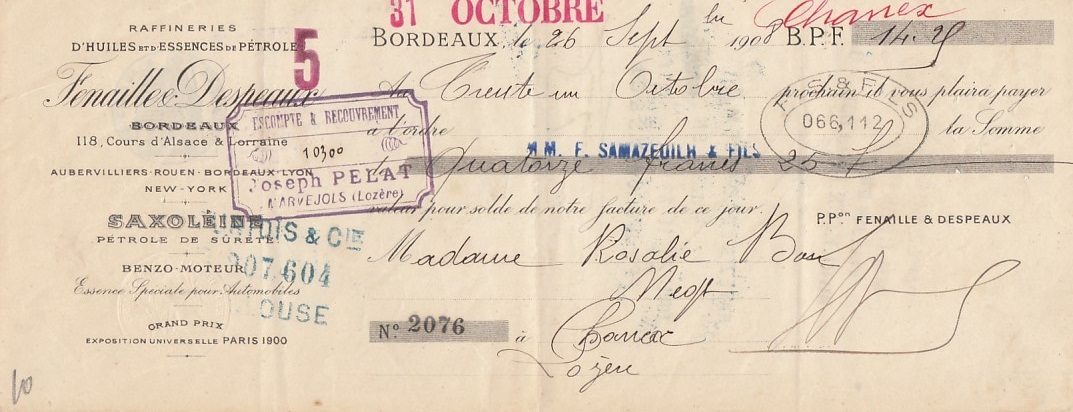 31 OCTOBRE
Chanex
RAFFINERIES
D'HUILES ET D'ESSENCES DE PÉTROLE
5
Fenaille & Despeaux
BORDEAUX
118, Cours d'Alsace & Lorraine
AUBERVILLIERS-ROUEN-BORDEAUX-LYON
NEW-YORK
SAXOLÉINE
PÉTROLE DE SÛRETÉ
BENZO-MOTEUR
Essence Speciale pour Automobiles
GRAND PRIX
EXPOSITION UNIVERSELLE PARIS 1900
ESCOMPTE & RECOUVREMENT
10300
Joseph PELAT
MARVEJOLS (Lozère)
& CIE
907.604
OUSE
BORDEAUX, le 26 Sept 1908 B.P.F. 14.25
Au Trente un Octobre prochain il vous plaira payer
à l'ordre la Somme
MM. F. SAMAZEUILH & FILS
F. S. & FILS
066,112
de Quatorze francs 25
valeur pour solde de notre facture de ce jour.
P.Pon FENAILLE & DESPEAUX
Madame Rosalie
Negt
No. 2076 à Chanac
Lozère
10